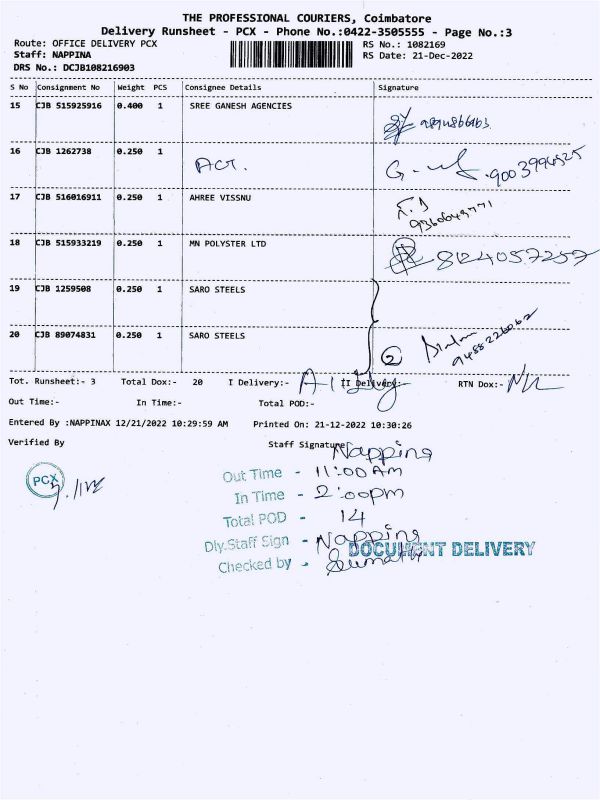 THE PROFESSIONAL COURIERS, Coimbatore
Delivery Runsheet - PCX - Phone No.:0422-3505555 - Page No.:3
Route: OFFICE DELIVERY PCX RS No.: 1082169
Staff: NAPPINA RS Date: 21-Dec-2022
DRS No.: DCJB108216903
S No Consignment No Weight PCS Consignee Details Signature
15 CJB 515925916 0.400 1 SREE GANESH AGENCIES
16 CJB 1262738 0.250 1 ACT. 9003994525
17 CJB 516016911 0.250 1 AHREE VISSNU
18 CJB 515933219 0.250 1 MN POLYSTER LTD 8124057257
19 CJB 1259508 0.250 1 SARO STEELS
20 CJB 89074831 0.250 1 SARO STEELS 2 9488226062
Tot. Runsheet:- 3 Total Dox:- 20 I Delivery:- II Delivery:- RTN Dox:- Nil
Out Time:- In Time:- Total POD:-
Entered By :NAPPINAX 12/21/2022 10:29:59 AM Printed On: 21-12-2022 10:30:26
Verified By Staff Signature Nappina
PCX
Out Time - 11:00 Am
In Time - 2:00pm
Total POD - 14
Dly.Staff Sign - Nappina
DOCUMENT DELIVERY
Checked by - Sumathi